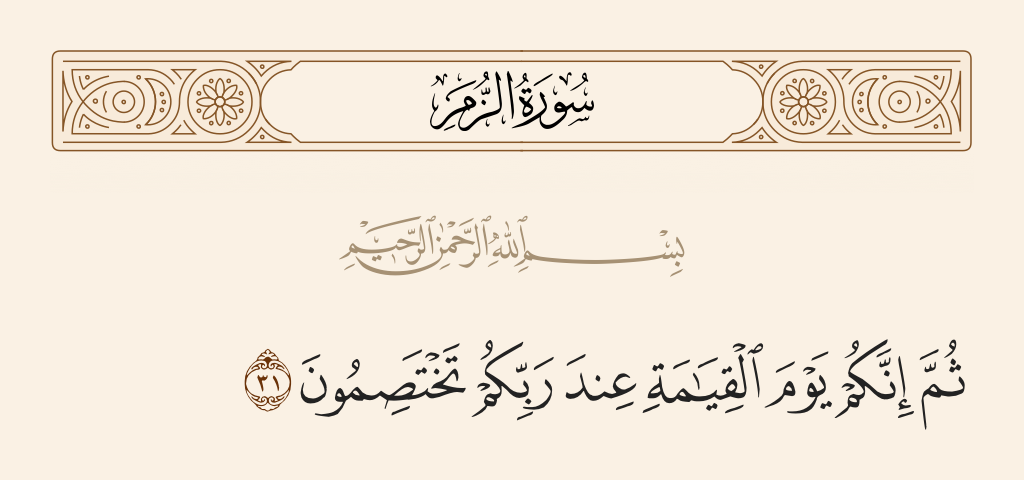 سُورَةُ الزُّمَرِ
بِسْمِ ٱللَّهِ ٱلرَّحْمَٰنِ ٱلرَّحِيمِ
ثُمَّ إِنَّكُمْ يَوْمَ ٱلْقِيَٰمَةِ عِندَ رَبِّكُمْ تَخْتَصِمُونَ ٣١